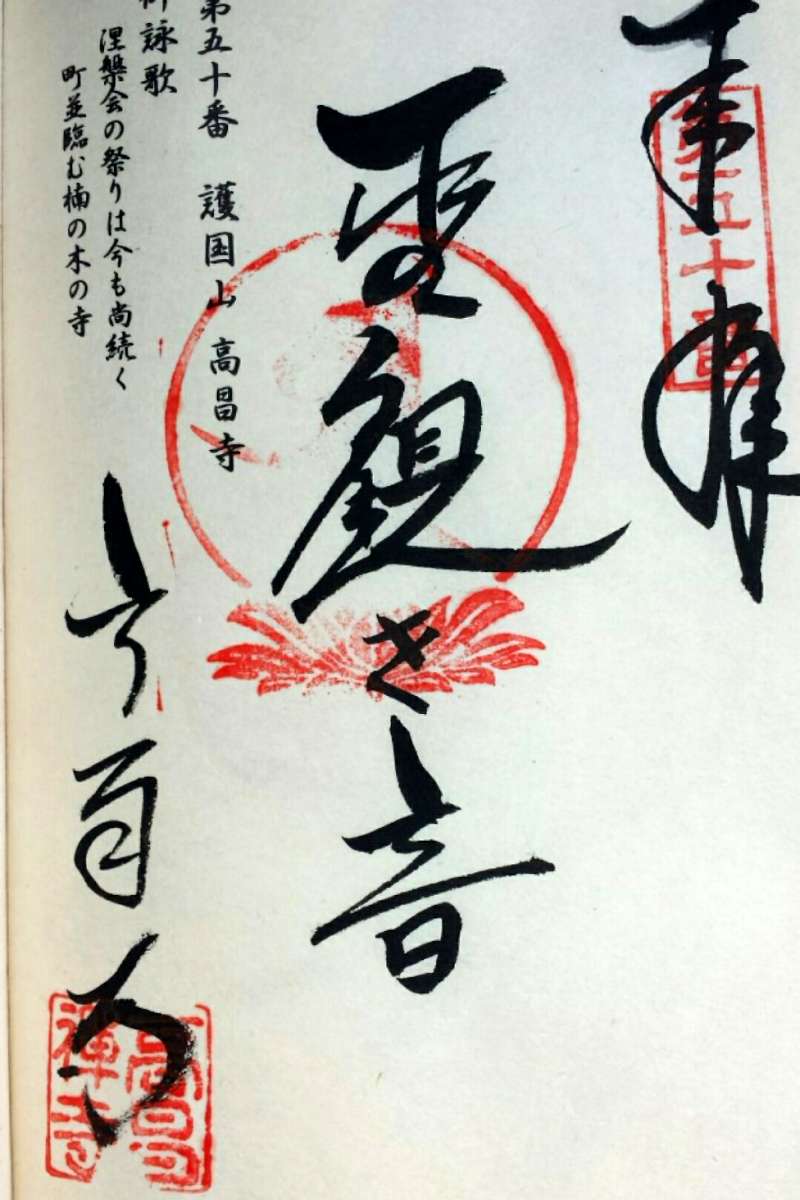 奉拝
第五十番
聖観世音
第五十番 護国山 高昌寺
御詠歌
涅槃会の祭りは今も尚続く
町並臨む楠の木の寺
高昌寺
高昌禅寺